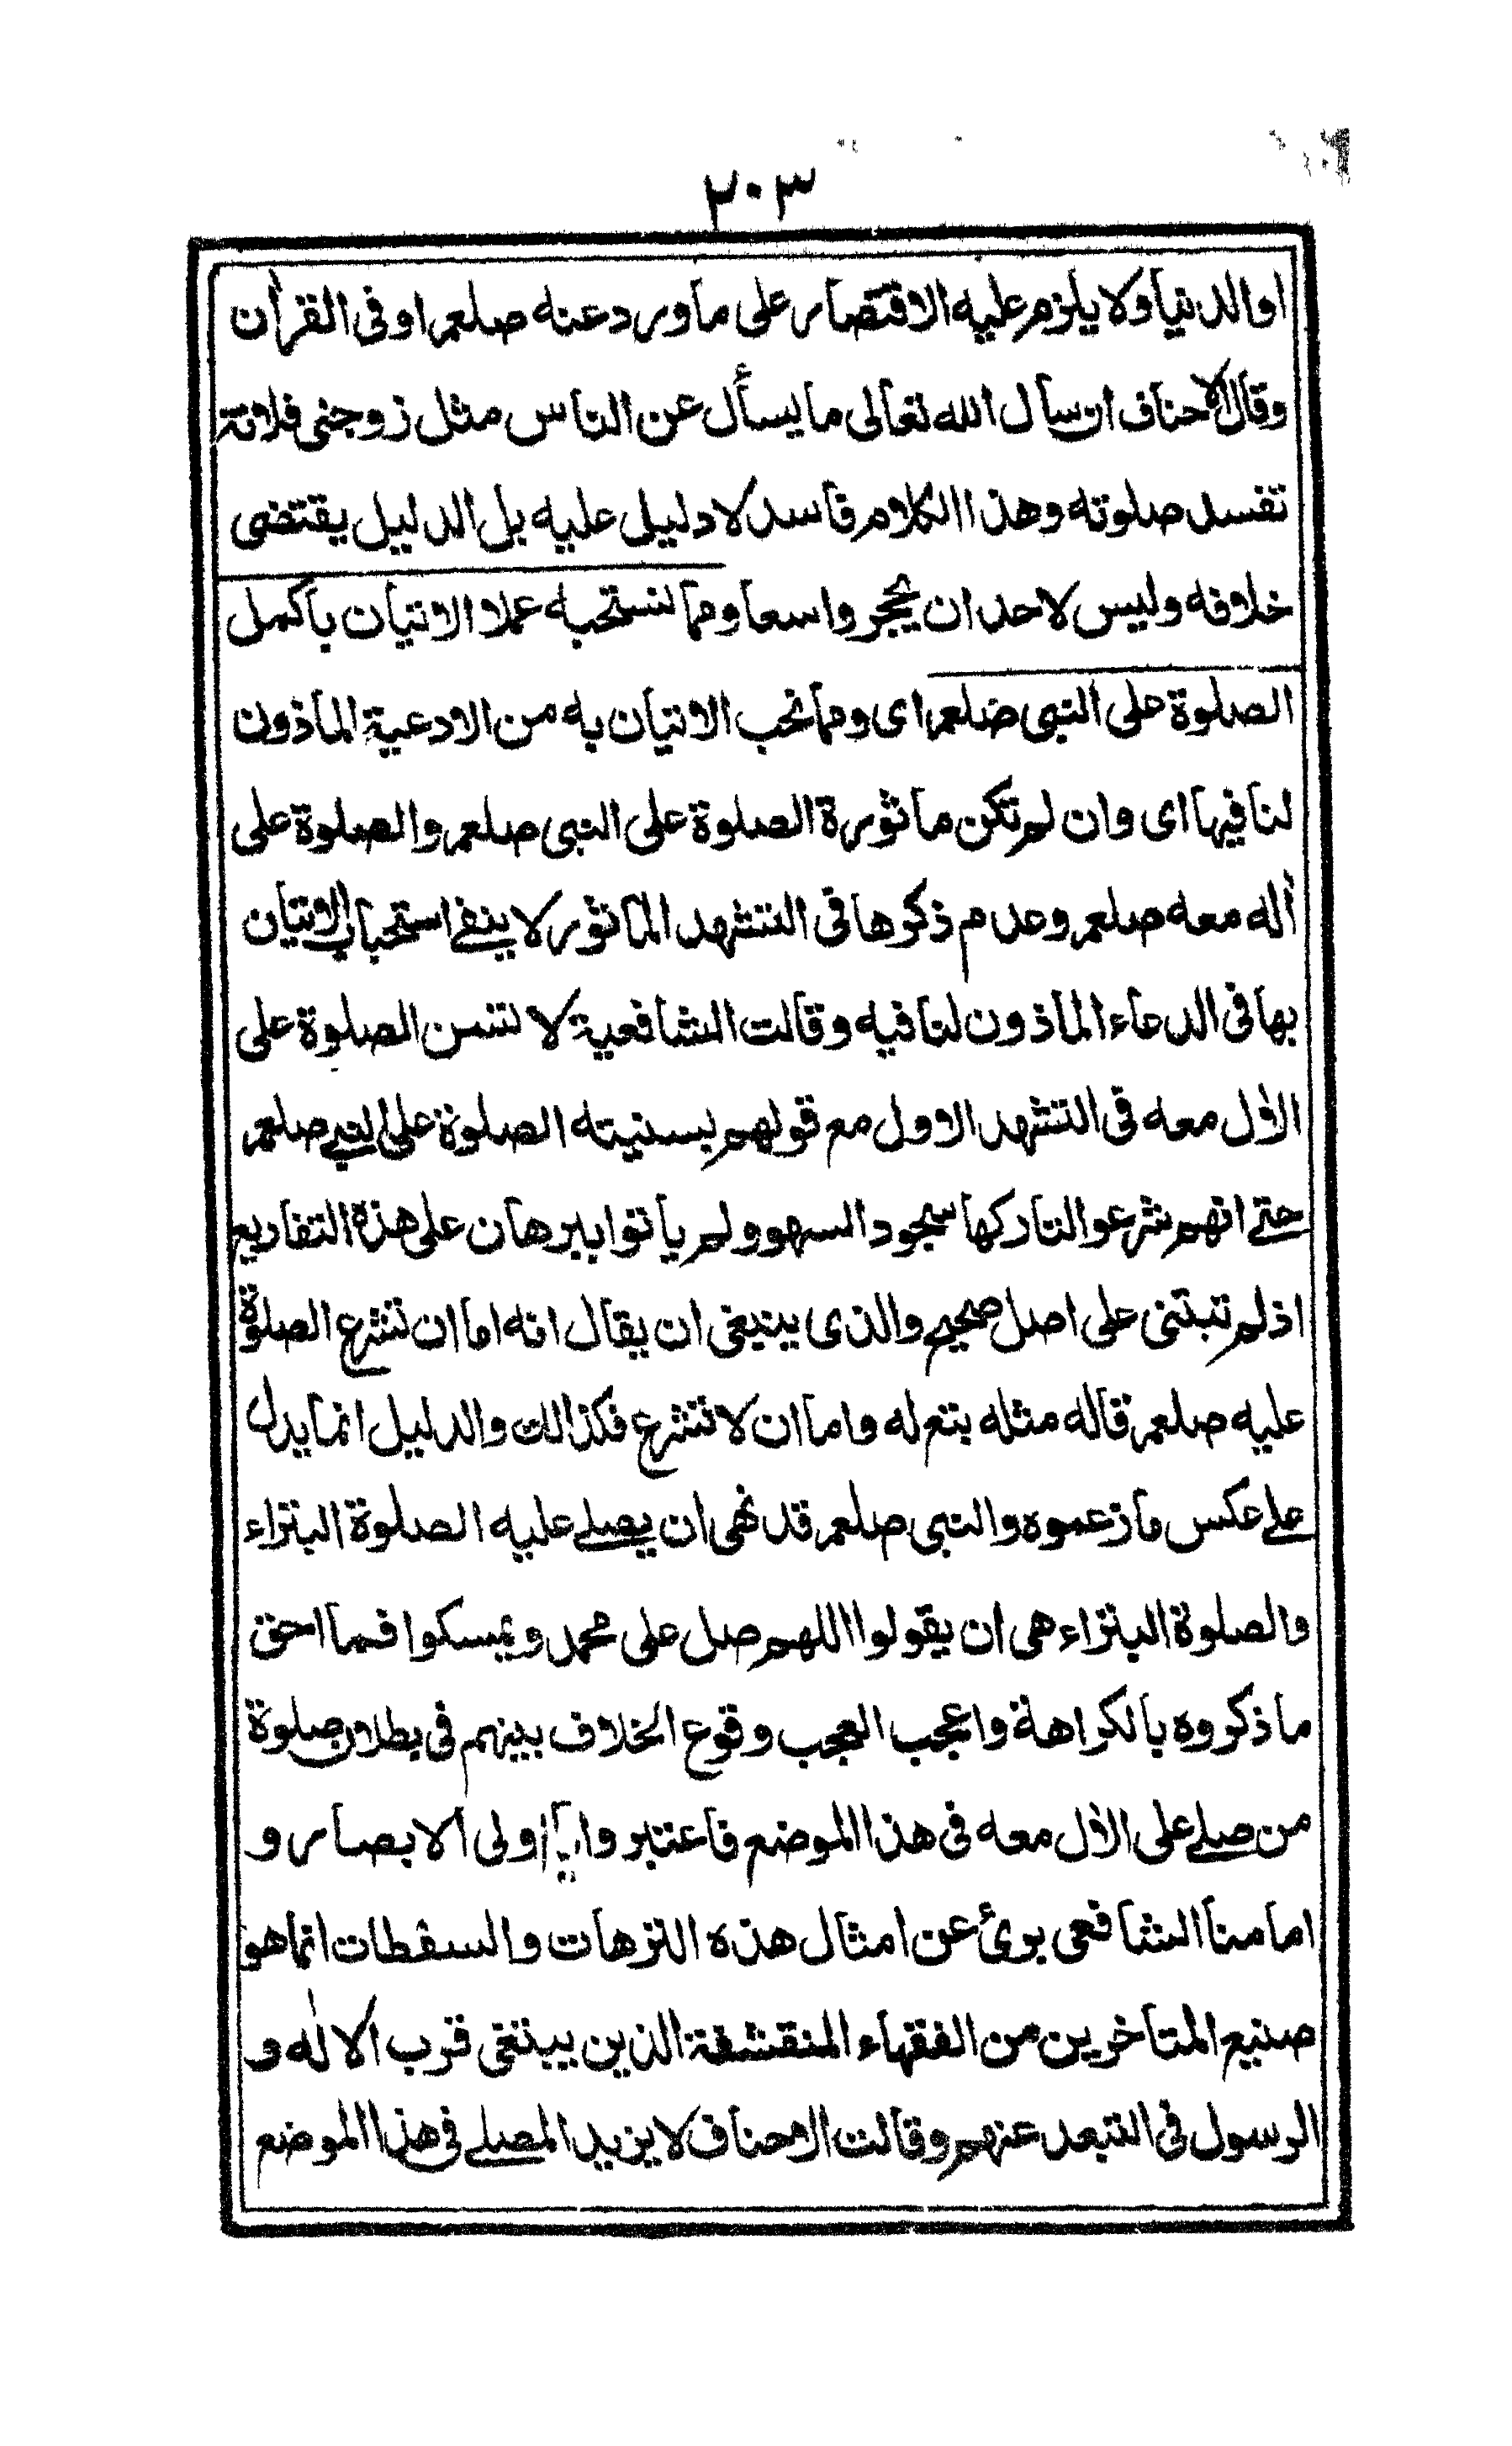 ٢٠٣
او الدنيا ولا يلزم عليه الاقتصار على ما ورد عنه صلعم او فى القرأن
وقال الاحناف ان سأل الله تعالى ما يسأل عن الناس مثل زوجنى فلانة
تفسد صلوته وهذا الكلام فاسد لا دليل عليه بل الدليل يقتضى
خلافه وليس لاحد ان يحجر واسعا ومما نستحبه عملا الاتيان باكمل
الصلوة على النبى صلعم اى ومما نحب الاتيان به من الادعية الماذون
لنا فيها اى وان لم تكن ماثورة الصلوة على النبى صلعم والصلوة على
أله معه صلعم وعدم ذكرها فى التشهد الماثور لا ينفے استحباب الاتيان
بها فى الدعاء الماذون لنا فيه وقالت الشافعية لا تسن الصلوة على
الأل معه فى التشهد الاول مع قولهم بسنيته الصلوة على النبے صلعم
حتے انهم شرعوا لتاركها سجود السهو ولم ياتوا ببرهان على هذه التفاريع
اذ لم تبتنى على اصل صحيح والذى ينبغى ان يقال انه اما ان تشرع الصلوة
عليه صلعم فاله مثله بتع له واما ان لا تشرع فكذالك والدليل انما يدل
علے عكس ما زعموه والنبى صلعم قد نهى ان يصلے عليه الصلوة البتراء
والصلوة البتراء هى ان يقولوا اللهم صل على محمد ويمسكوا فما احق
ما ذكروه بالكراهة واعجب العجب وقوع الخلاف بينهم فى بطلان صلوة
من صلے على الأل معه فى هذا الموضع فاعتبروا يا اولى الابصار و
امامنا الشافعى برئ عن امثال هذه الترهات والسقطات انما هو
صنيع المتاخرين من الفقهاء المتقشفة الذين يبتغى قرب الالٰه و
الرسول فى التبعد عنهم وقالت الاحناف لا يزيد المصلے فى هذا الموضع